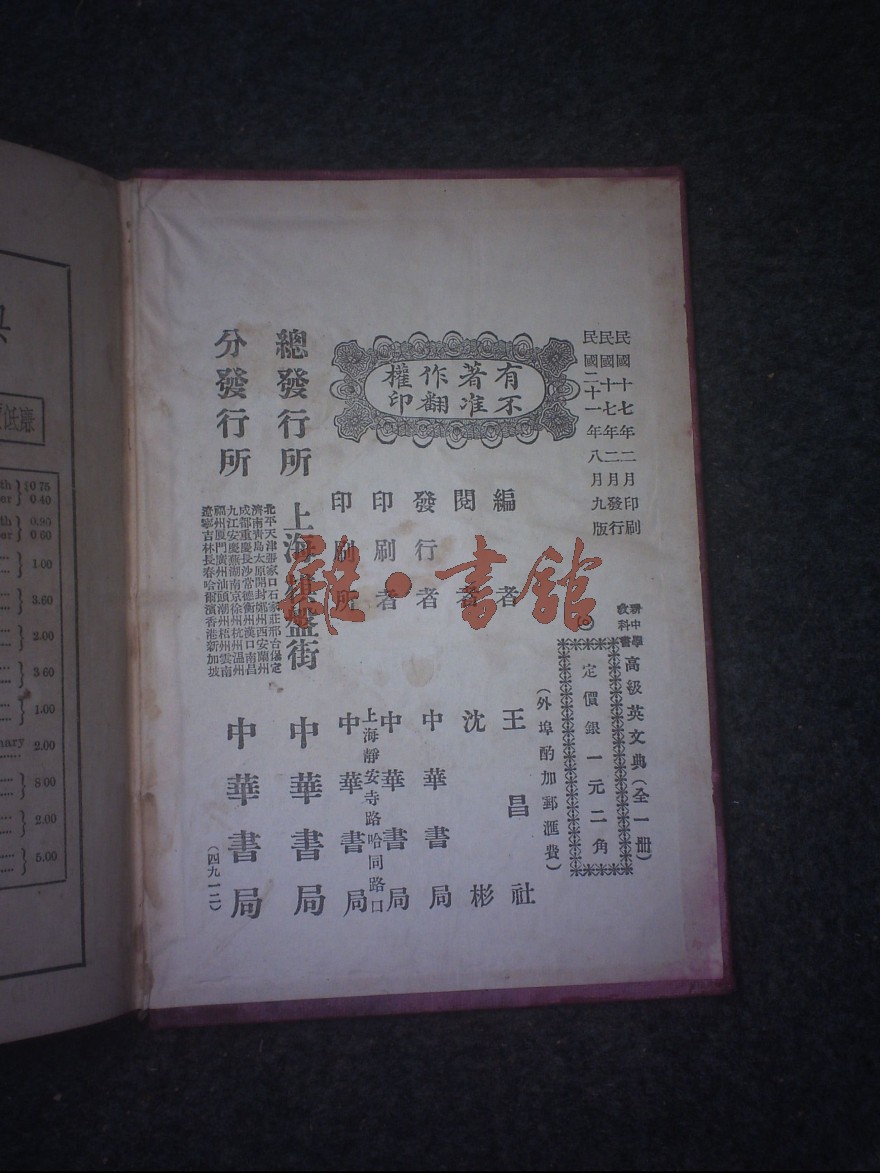 民國十七年二月印刷
民國十七年二月發行
民國二十一年八月九版
有著作權
不准翻印
新中學
教科書
高級英文典(全一冊)
◎
定價銀一元二角
(外埠酌加郵匯費)
編者 王昌社
閱者 沈彬
發行者 中華書局
印刷者 中華書局
印刷所 上海靜安寺路哈同路口 中華書局
總發行所 上海棋盤街 中華書局
分發行所 中華書局
北平天津張家口石家莊邢台保定
濟南青島太原開封鄭州西安蘭州
成都重慶長沙常德衡州漢口南昌
九江安慶蕪湖南京徐州杭州溫州
福州廈門廣州汕頭潮州梧州雲南
遼寧吉林長春哈爾濱香港新加坡
(四九一二)
雜·書館
低廉
0.75
0.40
0.95
0.60
1.00
3.60
2.00
3.60
1.00
2.00
8.00
2.00
5.00